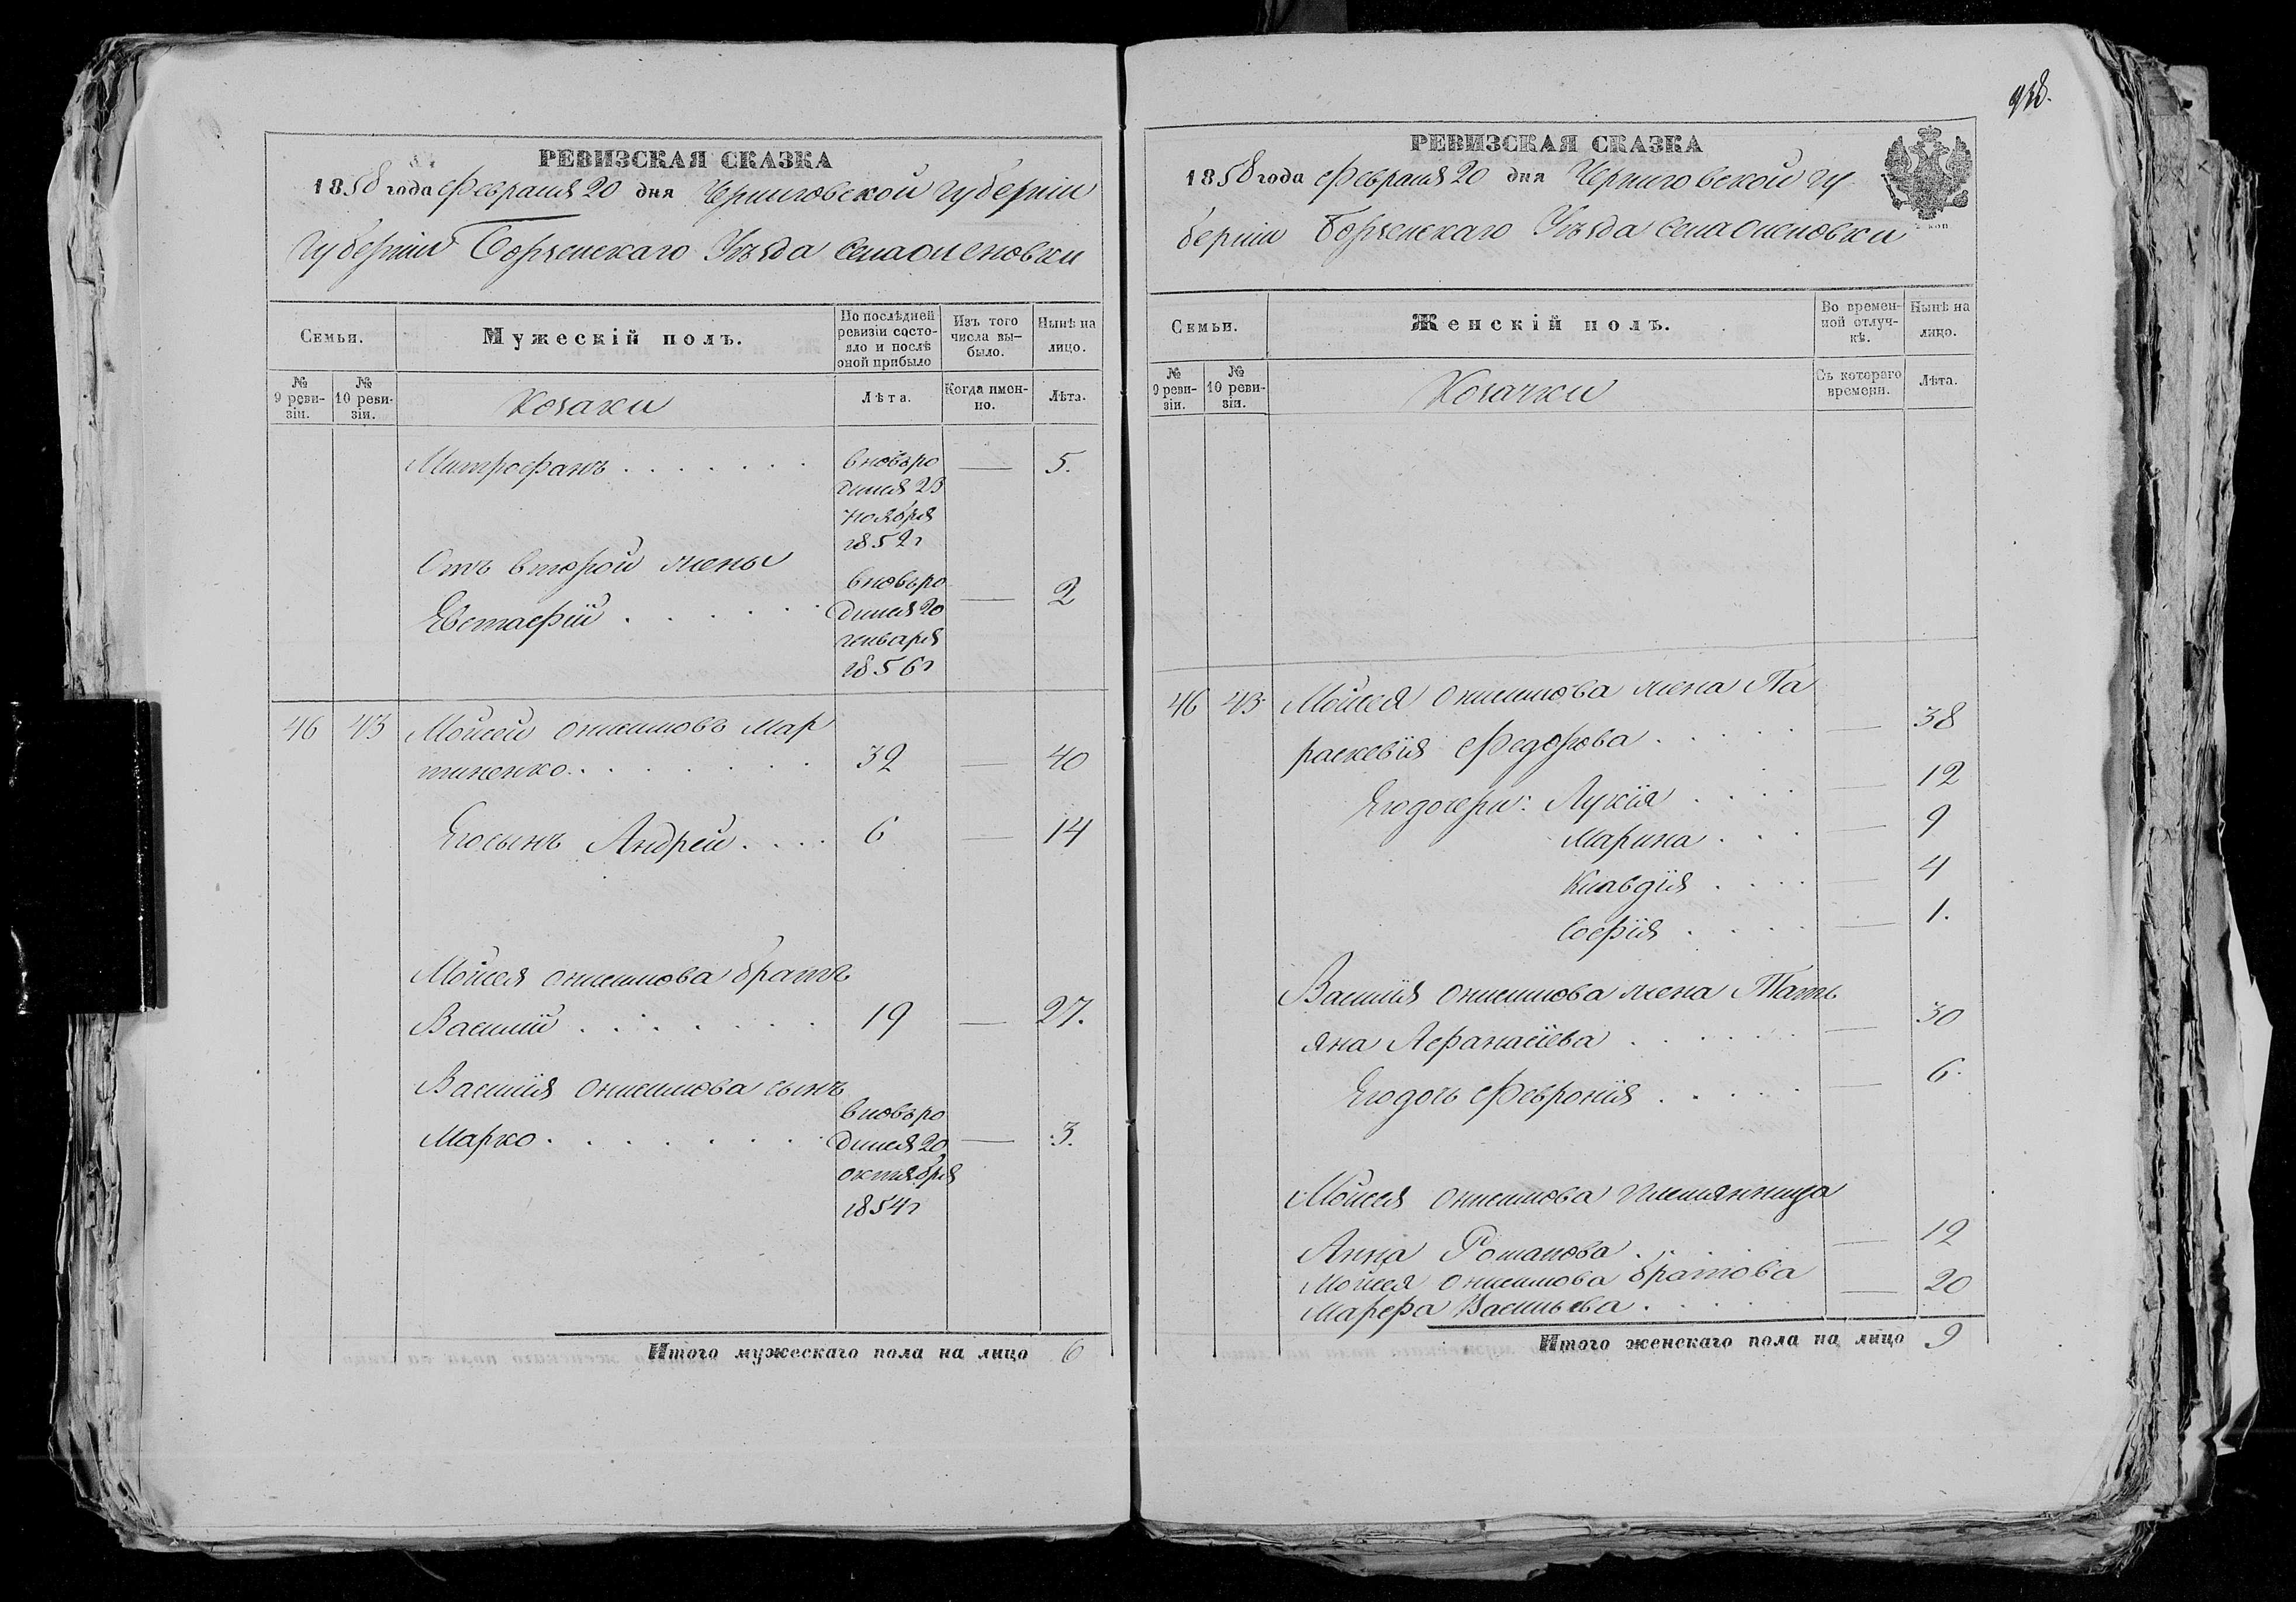 938.
РЕВИЗСКАЯ СКАЗКА
1858 года Февраля 20 дня Черниговской губерніи
губерніи Борзенскаго Уѣзда села Оленовки
Семьи.
Мужескій полъ.
По послѣдней ревизіи состояло и послѣ оной прибыло
Изъ того числа выбыло.
Нынѣ на лицо.
№ 9 ревизіи.
№ 10 ревизіи.
Козаки
Лѣта.
Когда именно.
Лѣта.
Митрофанъ . . . . . . вновьро — 5.
дился 23
ноября
1852г
Отъ второй жены
Евстафій . . . . . вновьро — 2
дился 20
генваря
1856г
46 43 Мойсей Онисимовъ Мар
тиненко . . . . . . . 32 — 40
Егосынъ Андрей . . . . 6 — 14
Мойсея Онисимова братъ
Василій . . . . . . . 19 — 27.
Василія Онисимова сынъ
Марко . . . . . . . вновьро — 3.
дился 20
октября
1854г
Итого мужескаго пола на лицо 6
РЕВИЗСКАЯ СКАЗКА
1858 года Февраля 20 дня Черниговской гу
берніи Борзенскаго Уѣзда села Оленовки
Семьи.
Женскій полъ.
Во временной отлучкѣ.
Нынѣ на лицо.
№ 9 ревизіи.
№ 10 ревизіи.
Козачки
Съ котораго времени.
Лѣта.
46 43 Мойсея Онисимова жена Па
раскевія Федорова . . . . . — 38
Егодочери: Лукія . . . . — 12
Марина . . . — 9
Клавдія . . . . — 4
Софія . . . . — 1.
Василія Онисимова жена Тать
яна Афанасіева . . . . . . — 30
Егодочь Февронія . . . . . — 6.
Мойсея Онисимова племянница
Анна Романова . . . . — 12
Мойсея Онисимова братова
Марфа Васильева . . . . . — 20
Итого женскаго пола на лицо 9